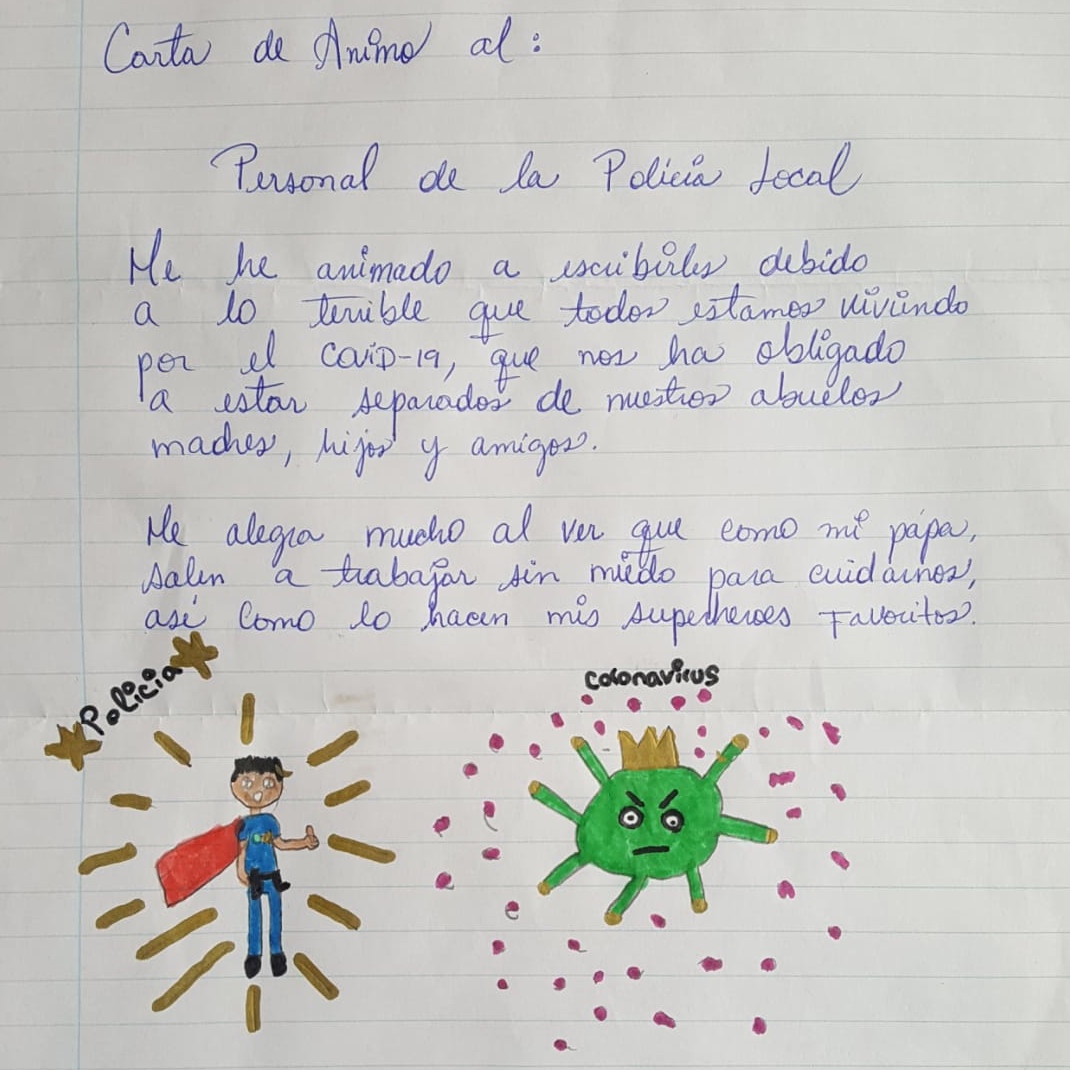 Carta de Animo al:
Personal de la Policia Local
Me he animado a escribirles debido
a lo terrible que todos estamos viviendo
por el COVID-19, que nos ha obligado
a estar separados de nuestros abuelos
madres, hijos y amigos.
Me alegra mucho al ver que como mi pápa,
salen a trabajar sin miedo para cuidarnos,
asi como lo hacen mis superheroes Favoritos.
Policia
coronavirus